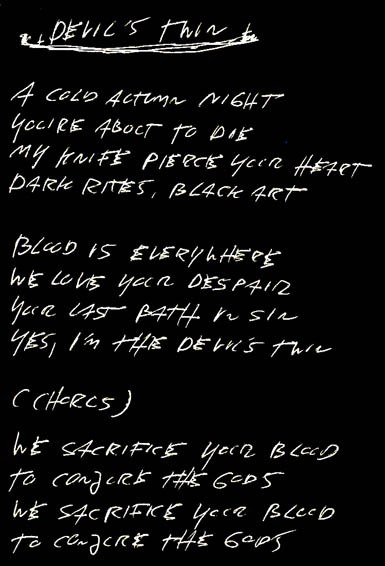 DEVIL'S TWIN
A COLD AUTUMN NIGHT
YOU'RE ABOUT TO DIE
MY KNIFE PIERCE YOUR HEART
DARK RITES, BLACK ART
BLOOD IS EVERYWHERE
WE LOVE YOUR DESPAIR
YOUR LAST BATH IN SIN
YES, I'M THE DEVIL'S TWIN
(CHORUS)
WE SACRIFICE YOUR BLOOD
TO CONJURE THE GODS
WE SACRIFICE YOUR BLOOD
TO CONJURE THE GODS